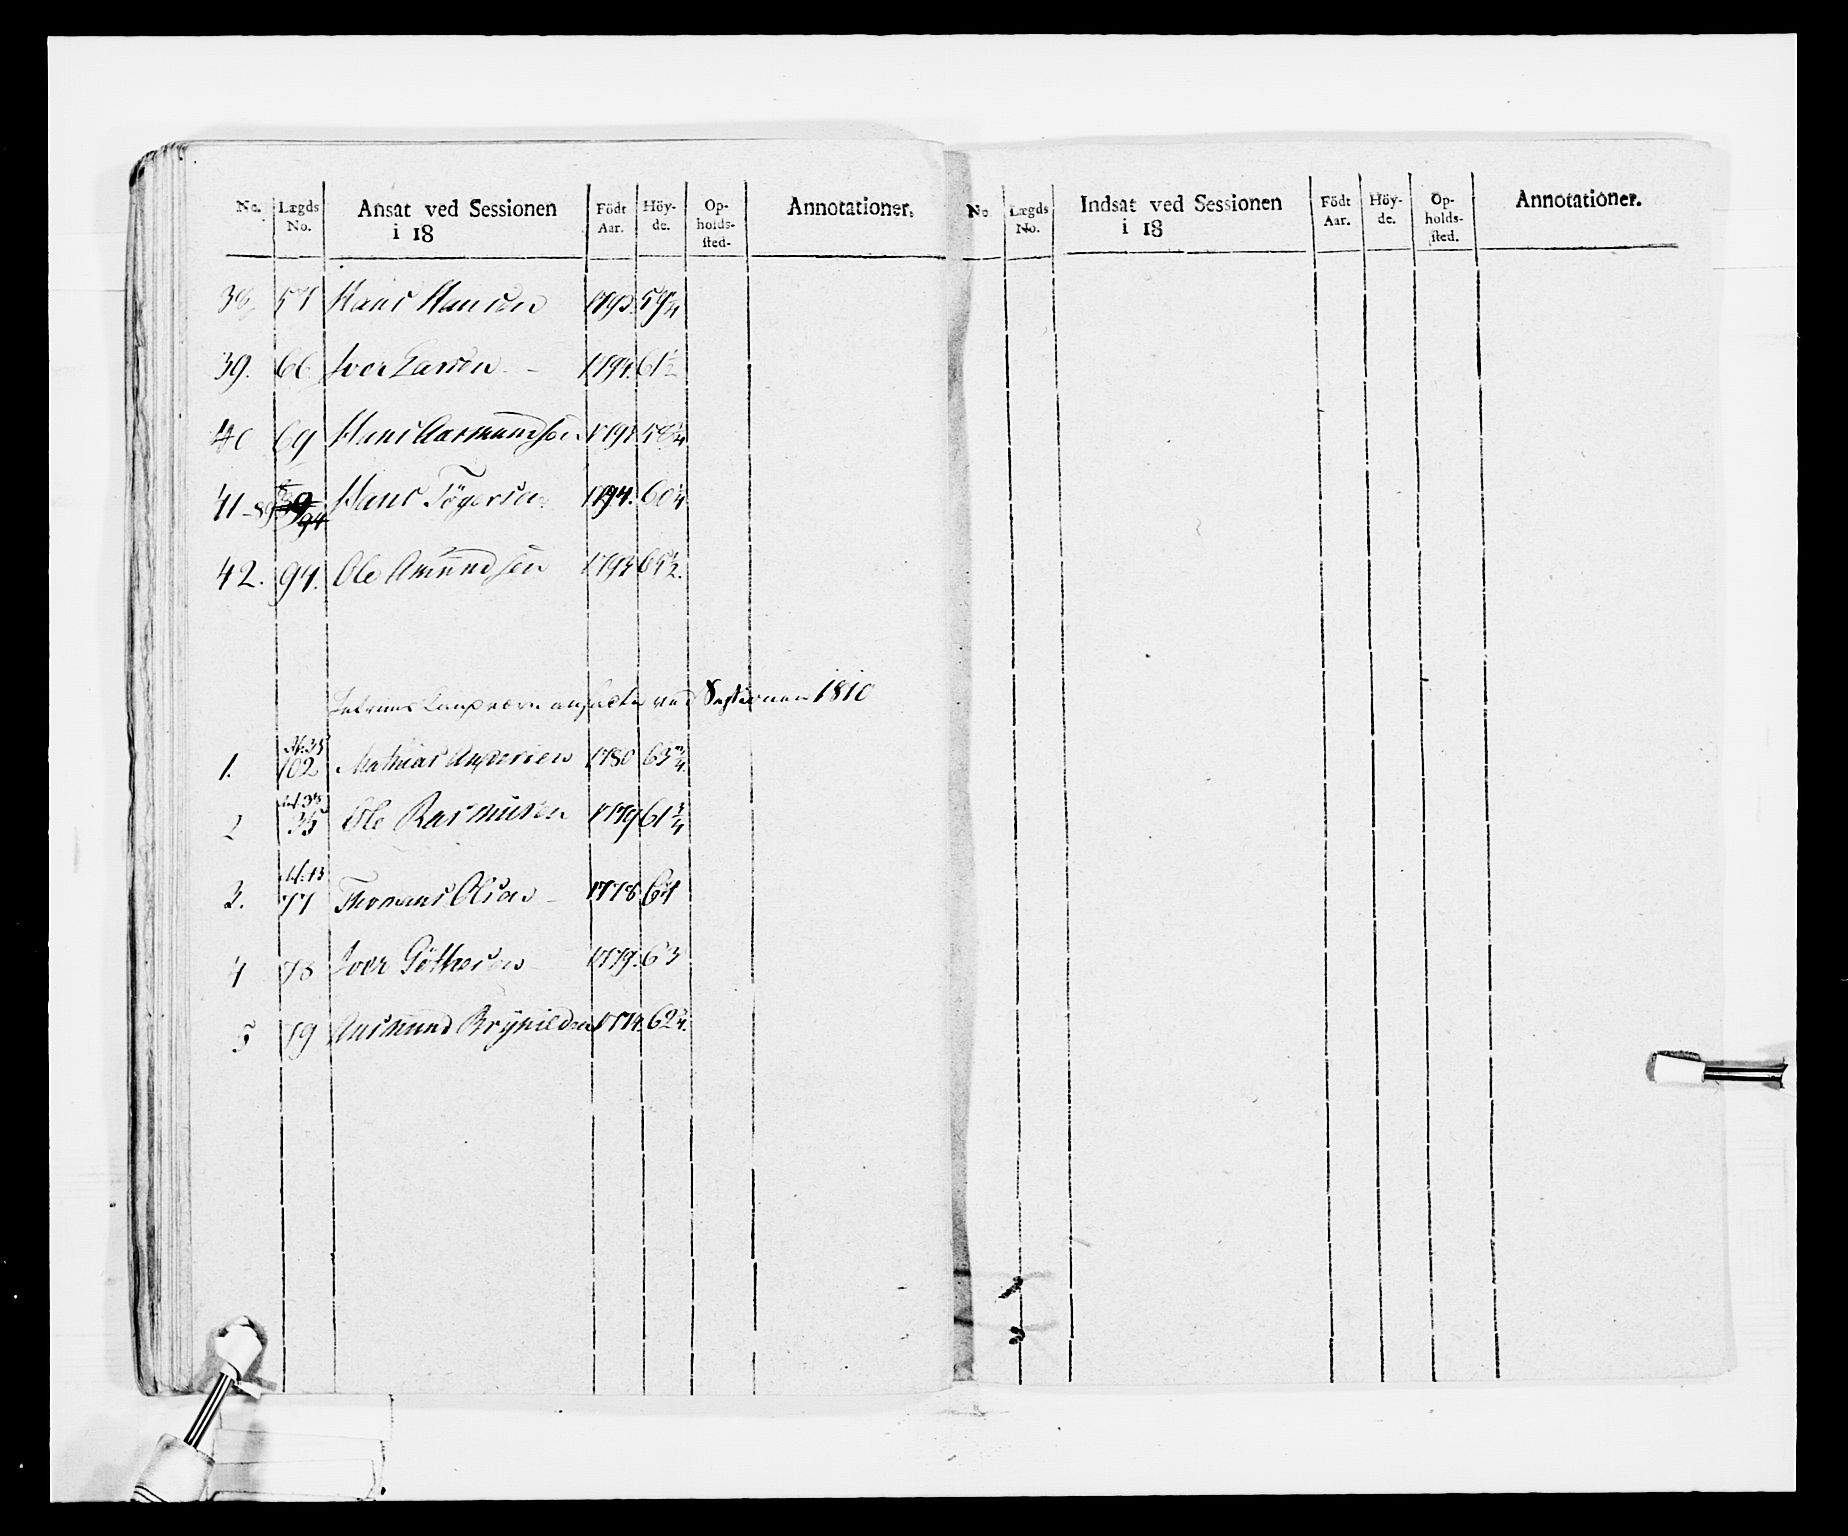 No. Lægds No. Ansat ved Sessionen i 18 Födt Aar. Höyde. Opholdssted. Annotationer.
38. 57 Hans Hansen 1793. 59 1/4
39. 66 Iver Larsen - 1794. 61 1/2
40 69 Hans Aasmundsen
41 Hans Tögersen 1794. 60 1/4
42. 94. Ole Amundsen
ved Sessionen 1810
1. No. 35 102 Mathias Andersen 1780 63 3/4
2 35 Ole Rasmusen 1779 61 3/4
3. No. 13 77 Thomas Olsen - 1778 64
4 78 Iver 1779. 63
5 79 Aasmund Brynildsen 1774.
No. Lægds No. Indsat ved Sessionen i 18 Födt Aar. Höyde. Opholdssted. Annotationer.